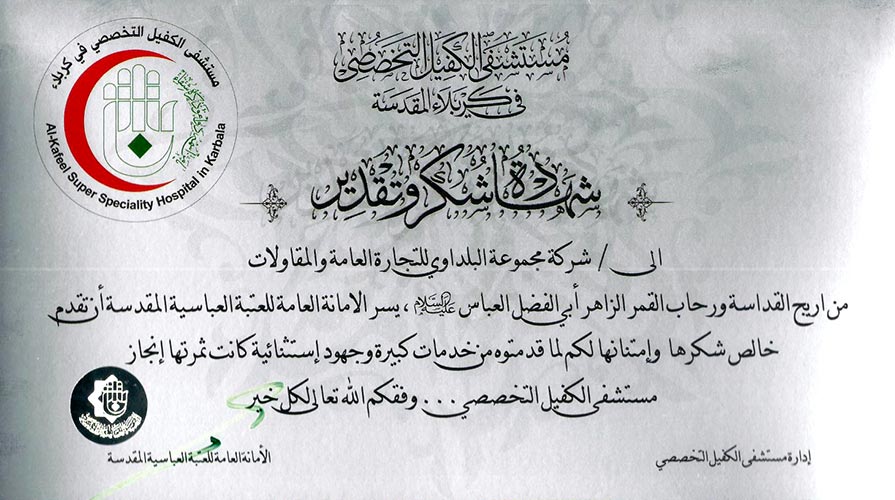 مستشفى الكفيل التخصصي في كربلاء
Al-Kafeel Super Speciality Hospital in Karbala
مستشفى الكفيل التخصصي
في كربلاء المقدسة
شهادة شكر وتقدير
الى / شركة مجموعة البلداوي للتجارة العامة والمقاولات
من اريج القداسة ورحاب القمر الزاهر أبي الفضل العباس عليه السلام ، يسر الامانة العامة للعتبة العباسية المقدسة أن تقدم
خالص شكرها وإمتنانها لكم لما قدمتوه من خدمات كبيرة وجهود إستثنائية كانت ثمرتها إنجاز
مستشفى الكفيل التخصصي ... وفقكم الله تعالى لكل خير
إدارة مستشفى الكفيل التخصصي
الأمانة العامة للعتبة العباسية المقدسة